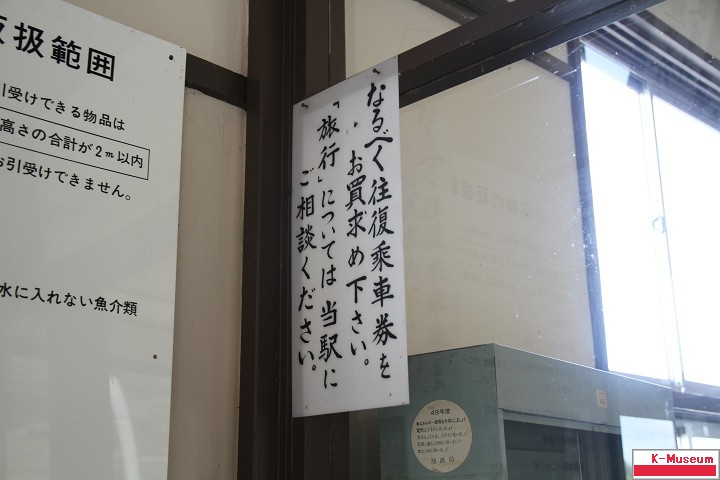 扱範囲
引受けできる物品は
高さの合計が2m以内
お引受けできません。
水に入れない魚介類
なるべく往復乗車券を
お買求め下さい。
「旅行」については当駅に
ご相談ください。
49年度
K-Museum